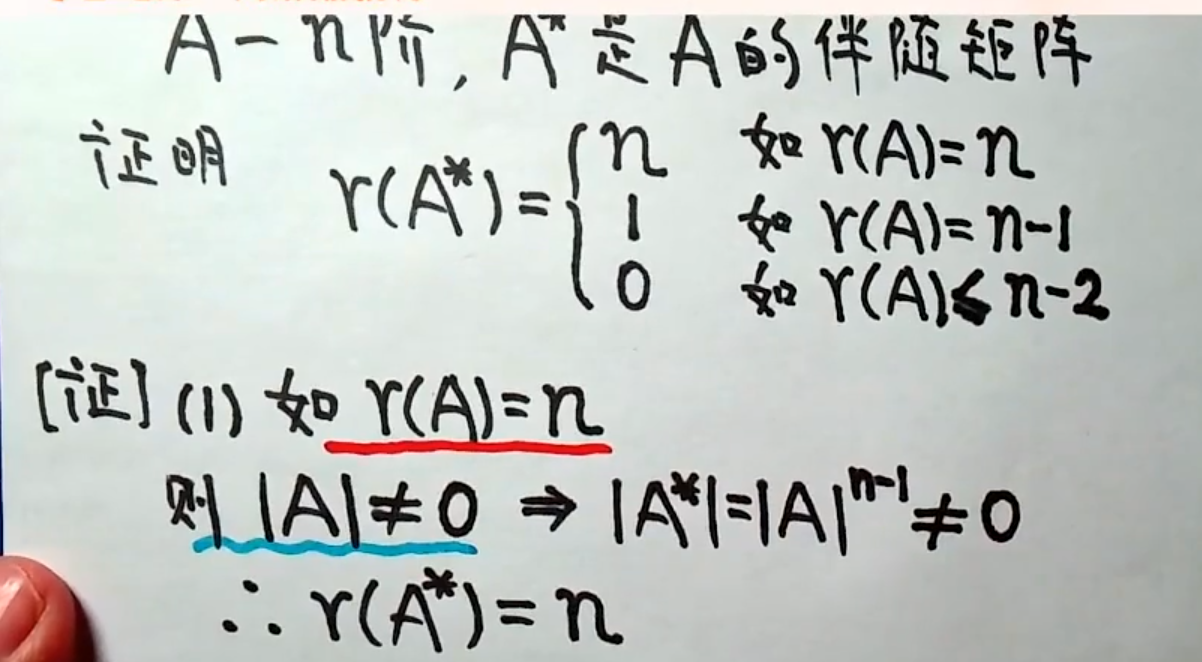 A-n阶, A* 是 A 的伴随矩阵
证明 r(A*) = { n 如 r(A)=n
1 如 r(A)=n-1
0 如 r(A)≤n-2
[证] (1) 如 r(A)=n
则 |A|≠0 ⇒ |A*|=|A|ⁿ⁻¹≠0
∴ r(A*)=n